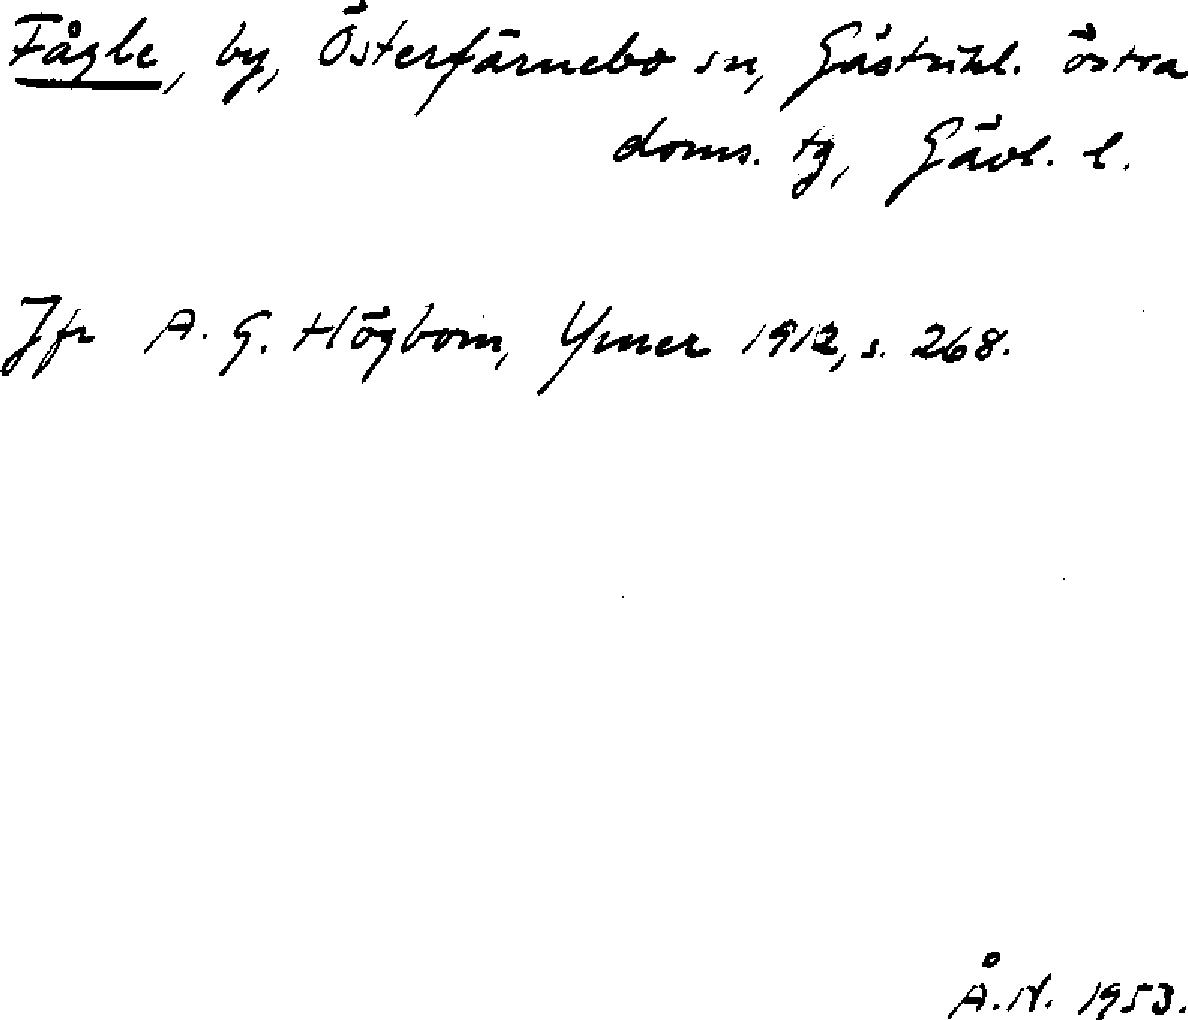 Fågle, by, Österfärnebo sn, Gästrikl. östra
doms. tg, Gävl. l.
Jfr A. G. Högbom, Ymer 1912, s. 268.
Å. N. 1953.